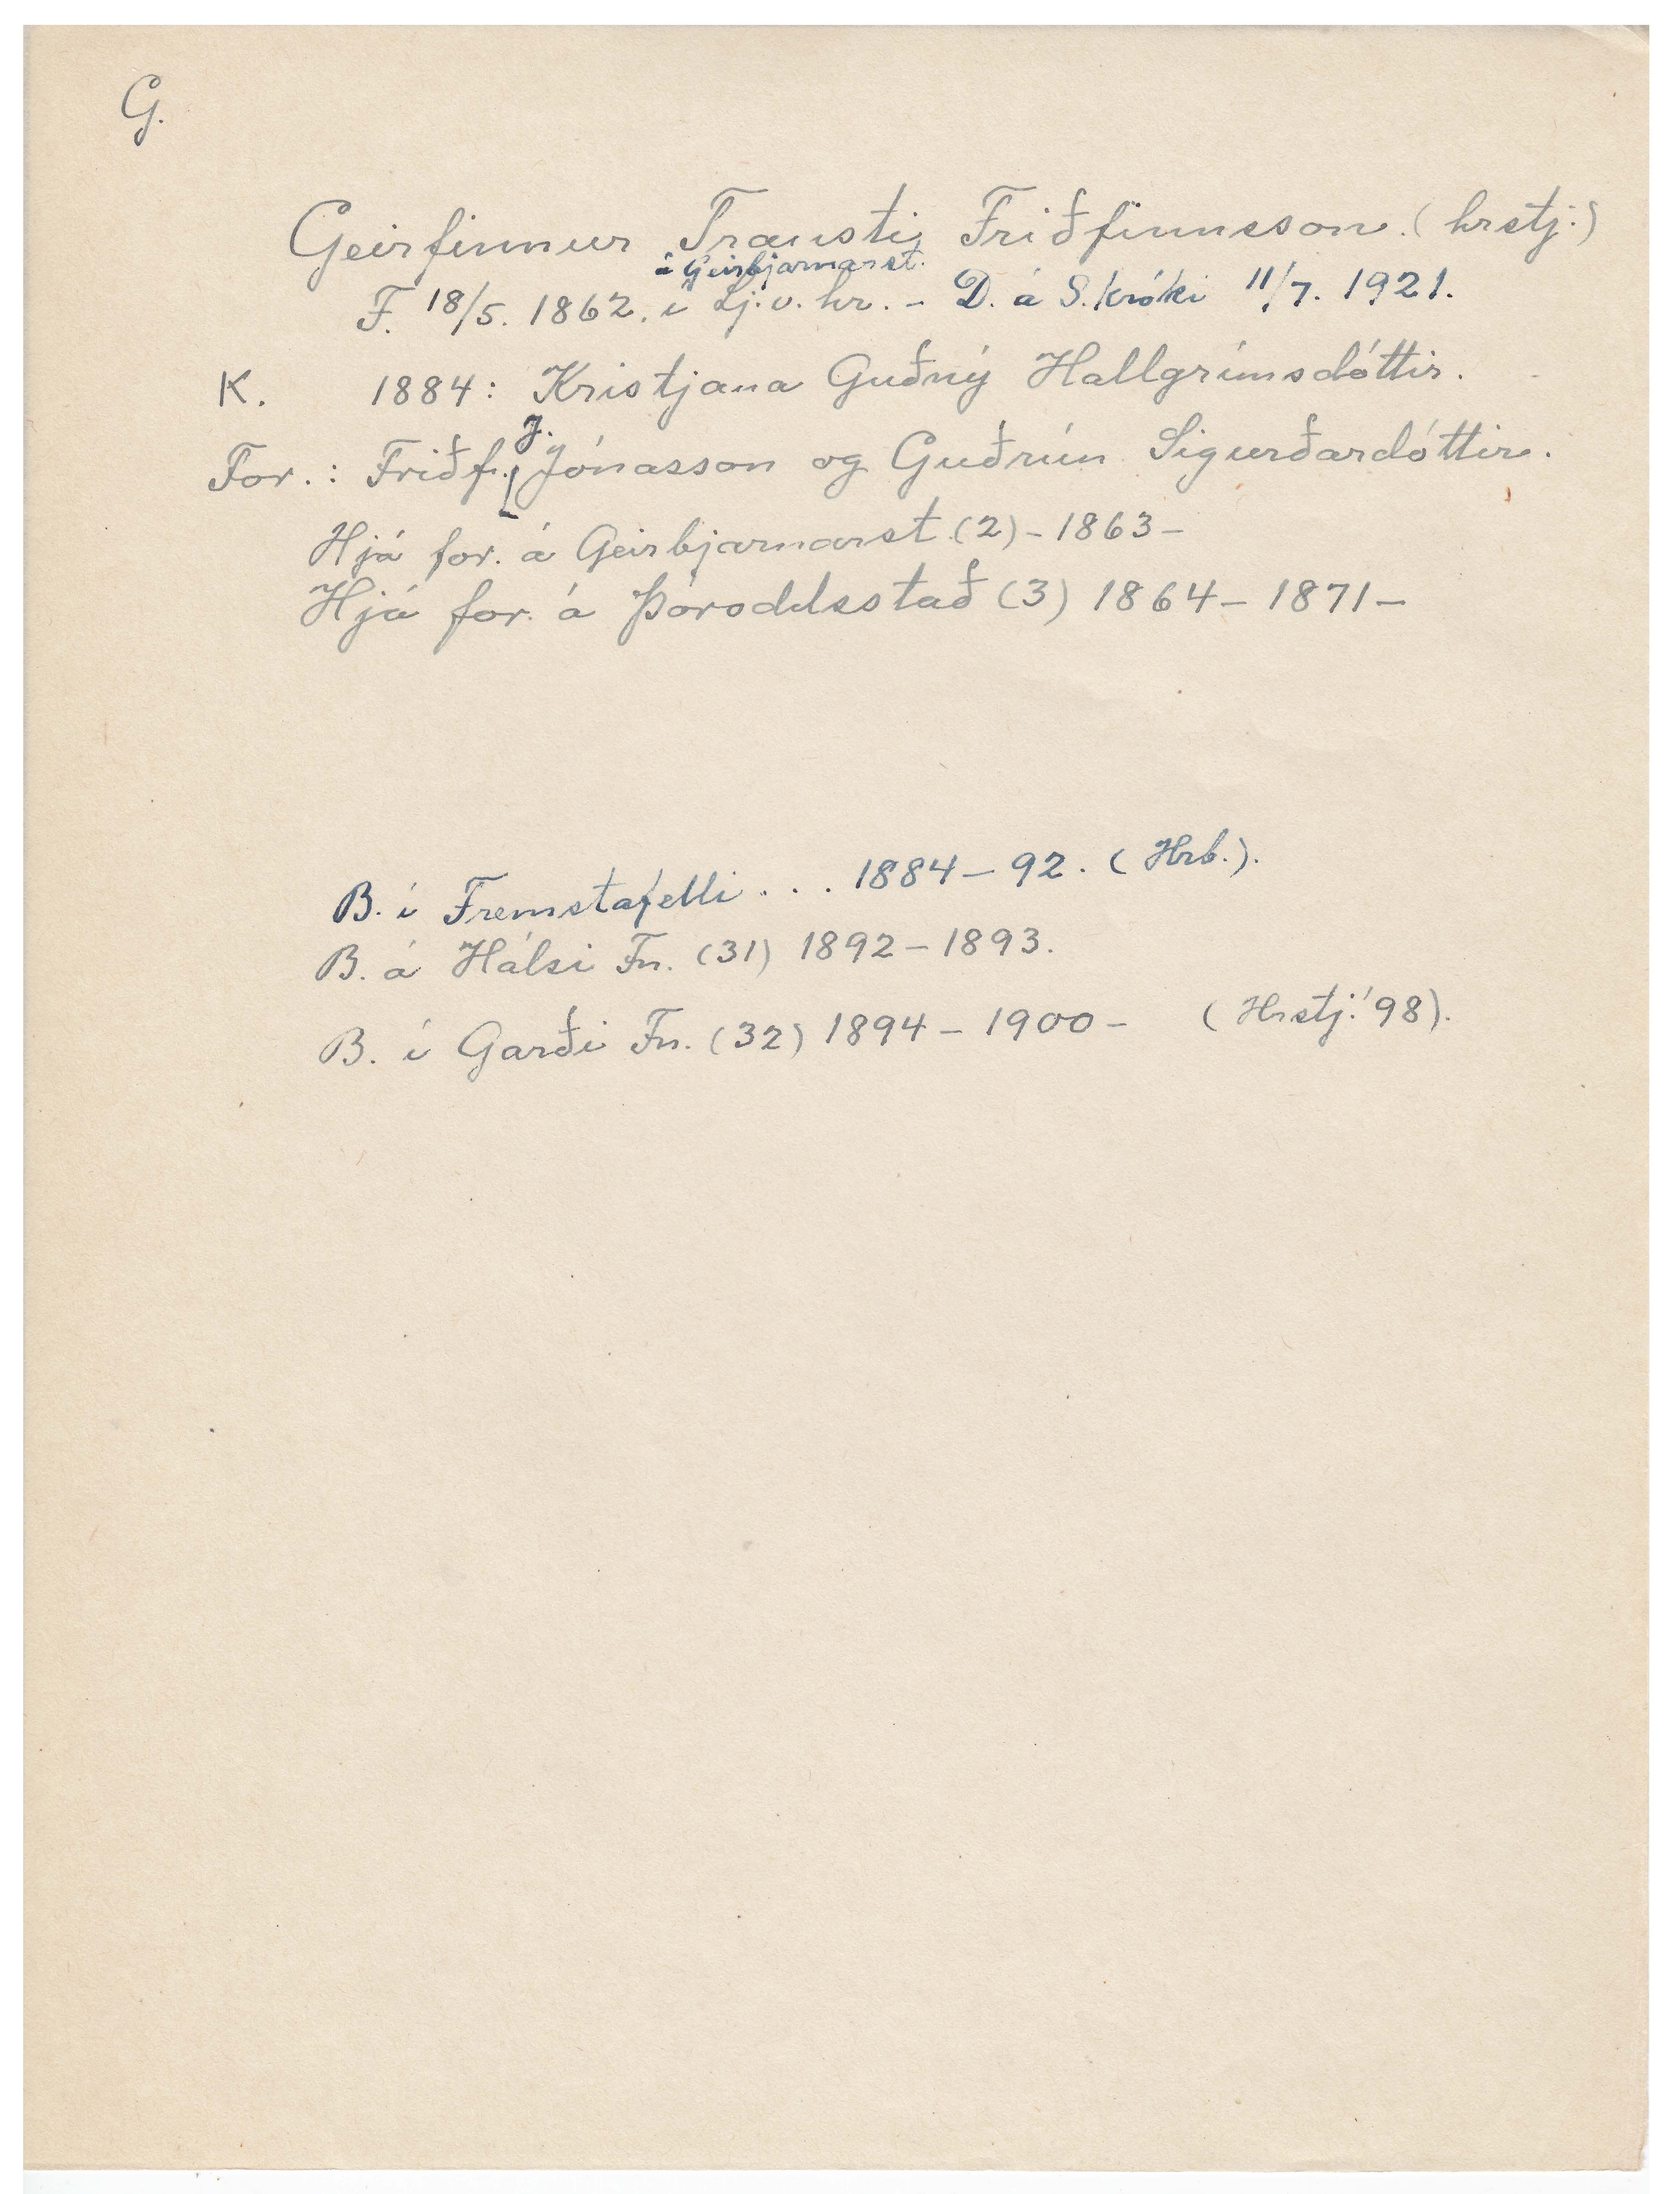 G.
Geirfinnur Trausti Friðfinnsson. (hrstj.)
á Geirbjarnarst.
F. 18/5. 1862. í Lj.v.hr. - D. á S.króki 11/7. 1921.
K. 1884: Kristjana Guðný Hallgrímsdóttir.
J.
For.: Friðf. Jónasson og Guðrún Sigurðardóttir.
Hjá for. á Geirbjarnarst. (2) - 1863 -
Hjá for. á Þóroddsstað (3) 1864 - 1871 -
B. í Fremstafelli . . . 1884 - 92. (Hrb.).
B. á Hálsi Fn. (31) 1892 - 1893.
B. í Garði Fn. (32) 1894 - 1900 - (Hrstj. '98).